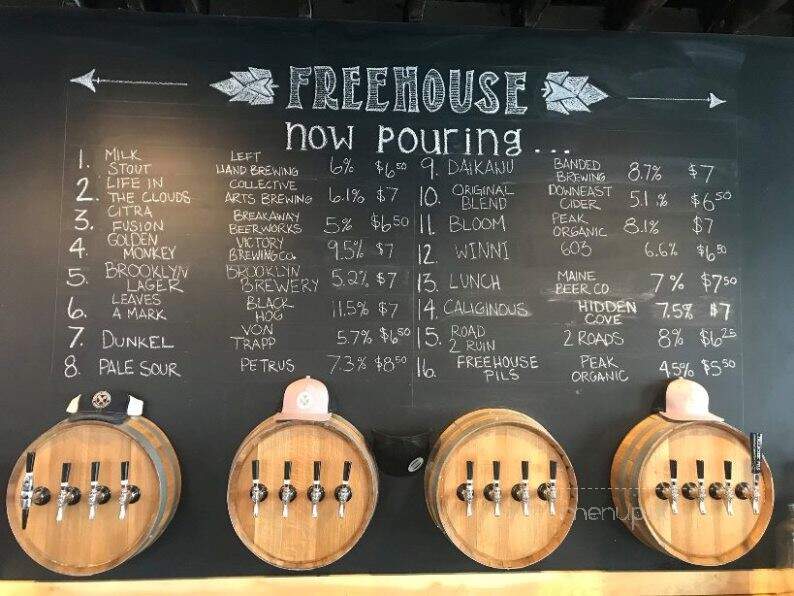 FREEHOUSE
now pouring...
1. MILK STOUT LEFT HAND BREWING 6% $6.50
2. LIFE IN THE CLOUDS COLLECTIVE ARTS BREWING 6.1% $7
3. CITRA FUSION BREAKAWAY BEERWORKS 5% $6.50
4. GOLDEN MONKEY VICTORY BREWING CO. 9.5% $7
5. BROOKLYN LAGER BROOKLYN BREWERY 5.2% $7
6. LEAVES A MARK BLACK HOG 11.5% $7
7. DUNKEL VON TRAPP 5.7% $6.50
8. PALE SOUR PETRUS 7.3% $8.50
9. DAIKAIJU BANDED BREWING 8.7% $7
10. ORIGINAL BLEND DOWNEAST CIDER 5.1% $6.50
11. BLOOM PEAK ORGANIC 8.1% $7
12. WINNI 603 6.6% $6.50
13. LUNCH MAINE BEER CO 7% $7.50
14. CALIGINOUS HIDDEN COVE 7.5% $7
15. ROAD 2 RUIN 2 ROADS 8% $6.25
16. FREEHOUSE PILS PEAK ORGANIC 4.5% $5.50